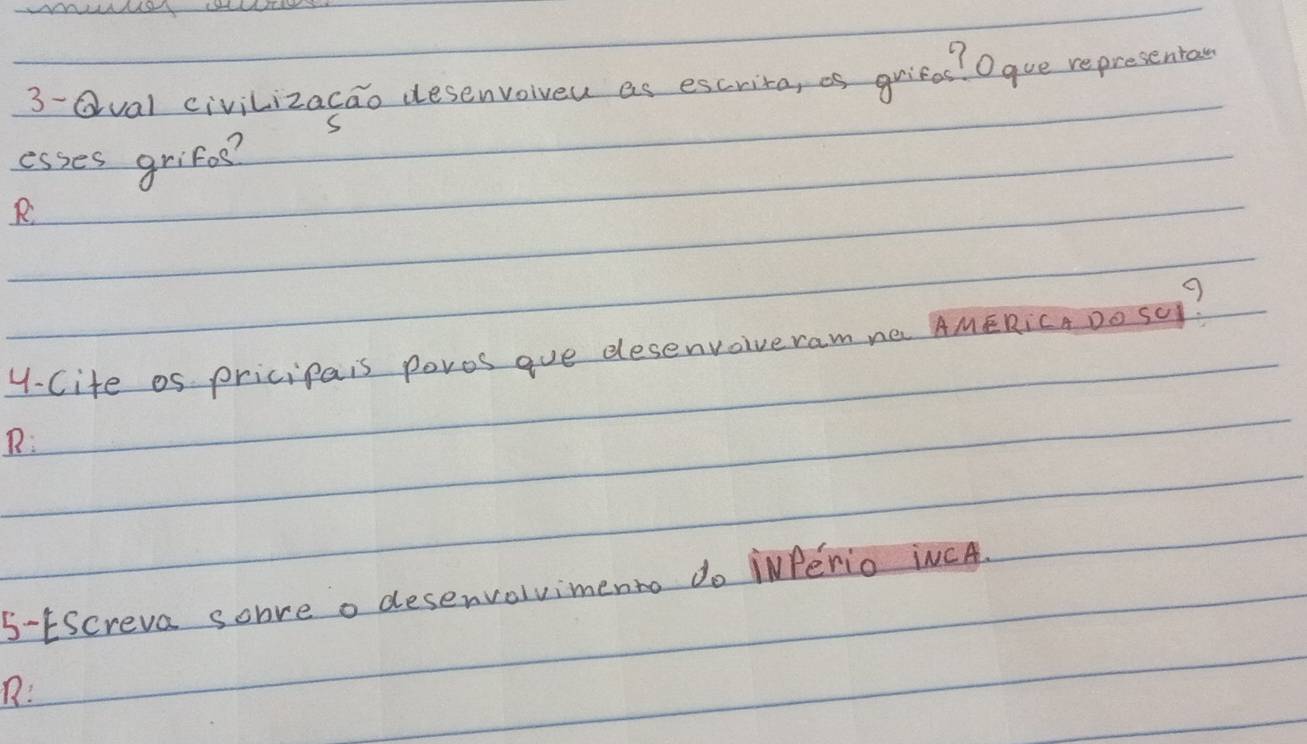 3-Qual civilização desenvolveu as escrita, os grifos? O que representam
esses grifos?
R:
4-Cite os pricipais povos que desenvolveram na AMÉRICA DO SUl?
R:
5-Escreva sobre o desenvolvimento do iNPério iNCA.
R: